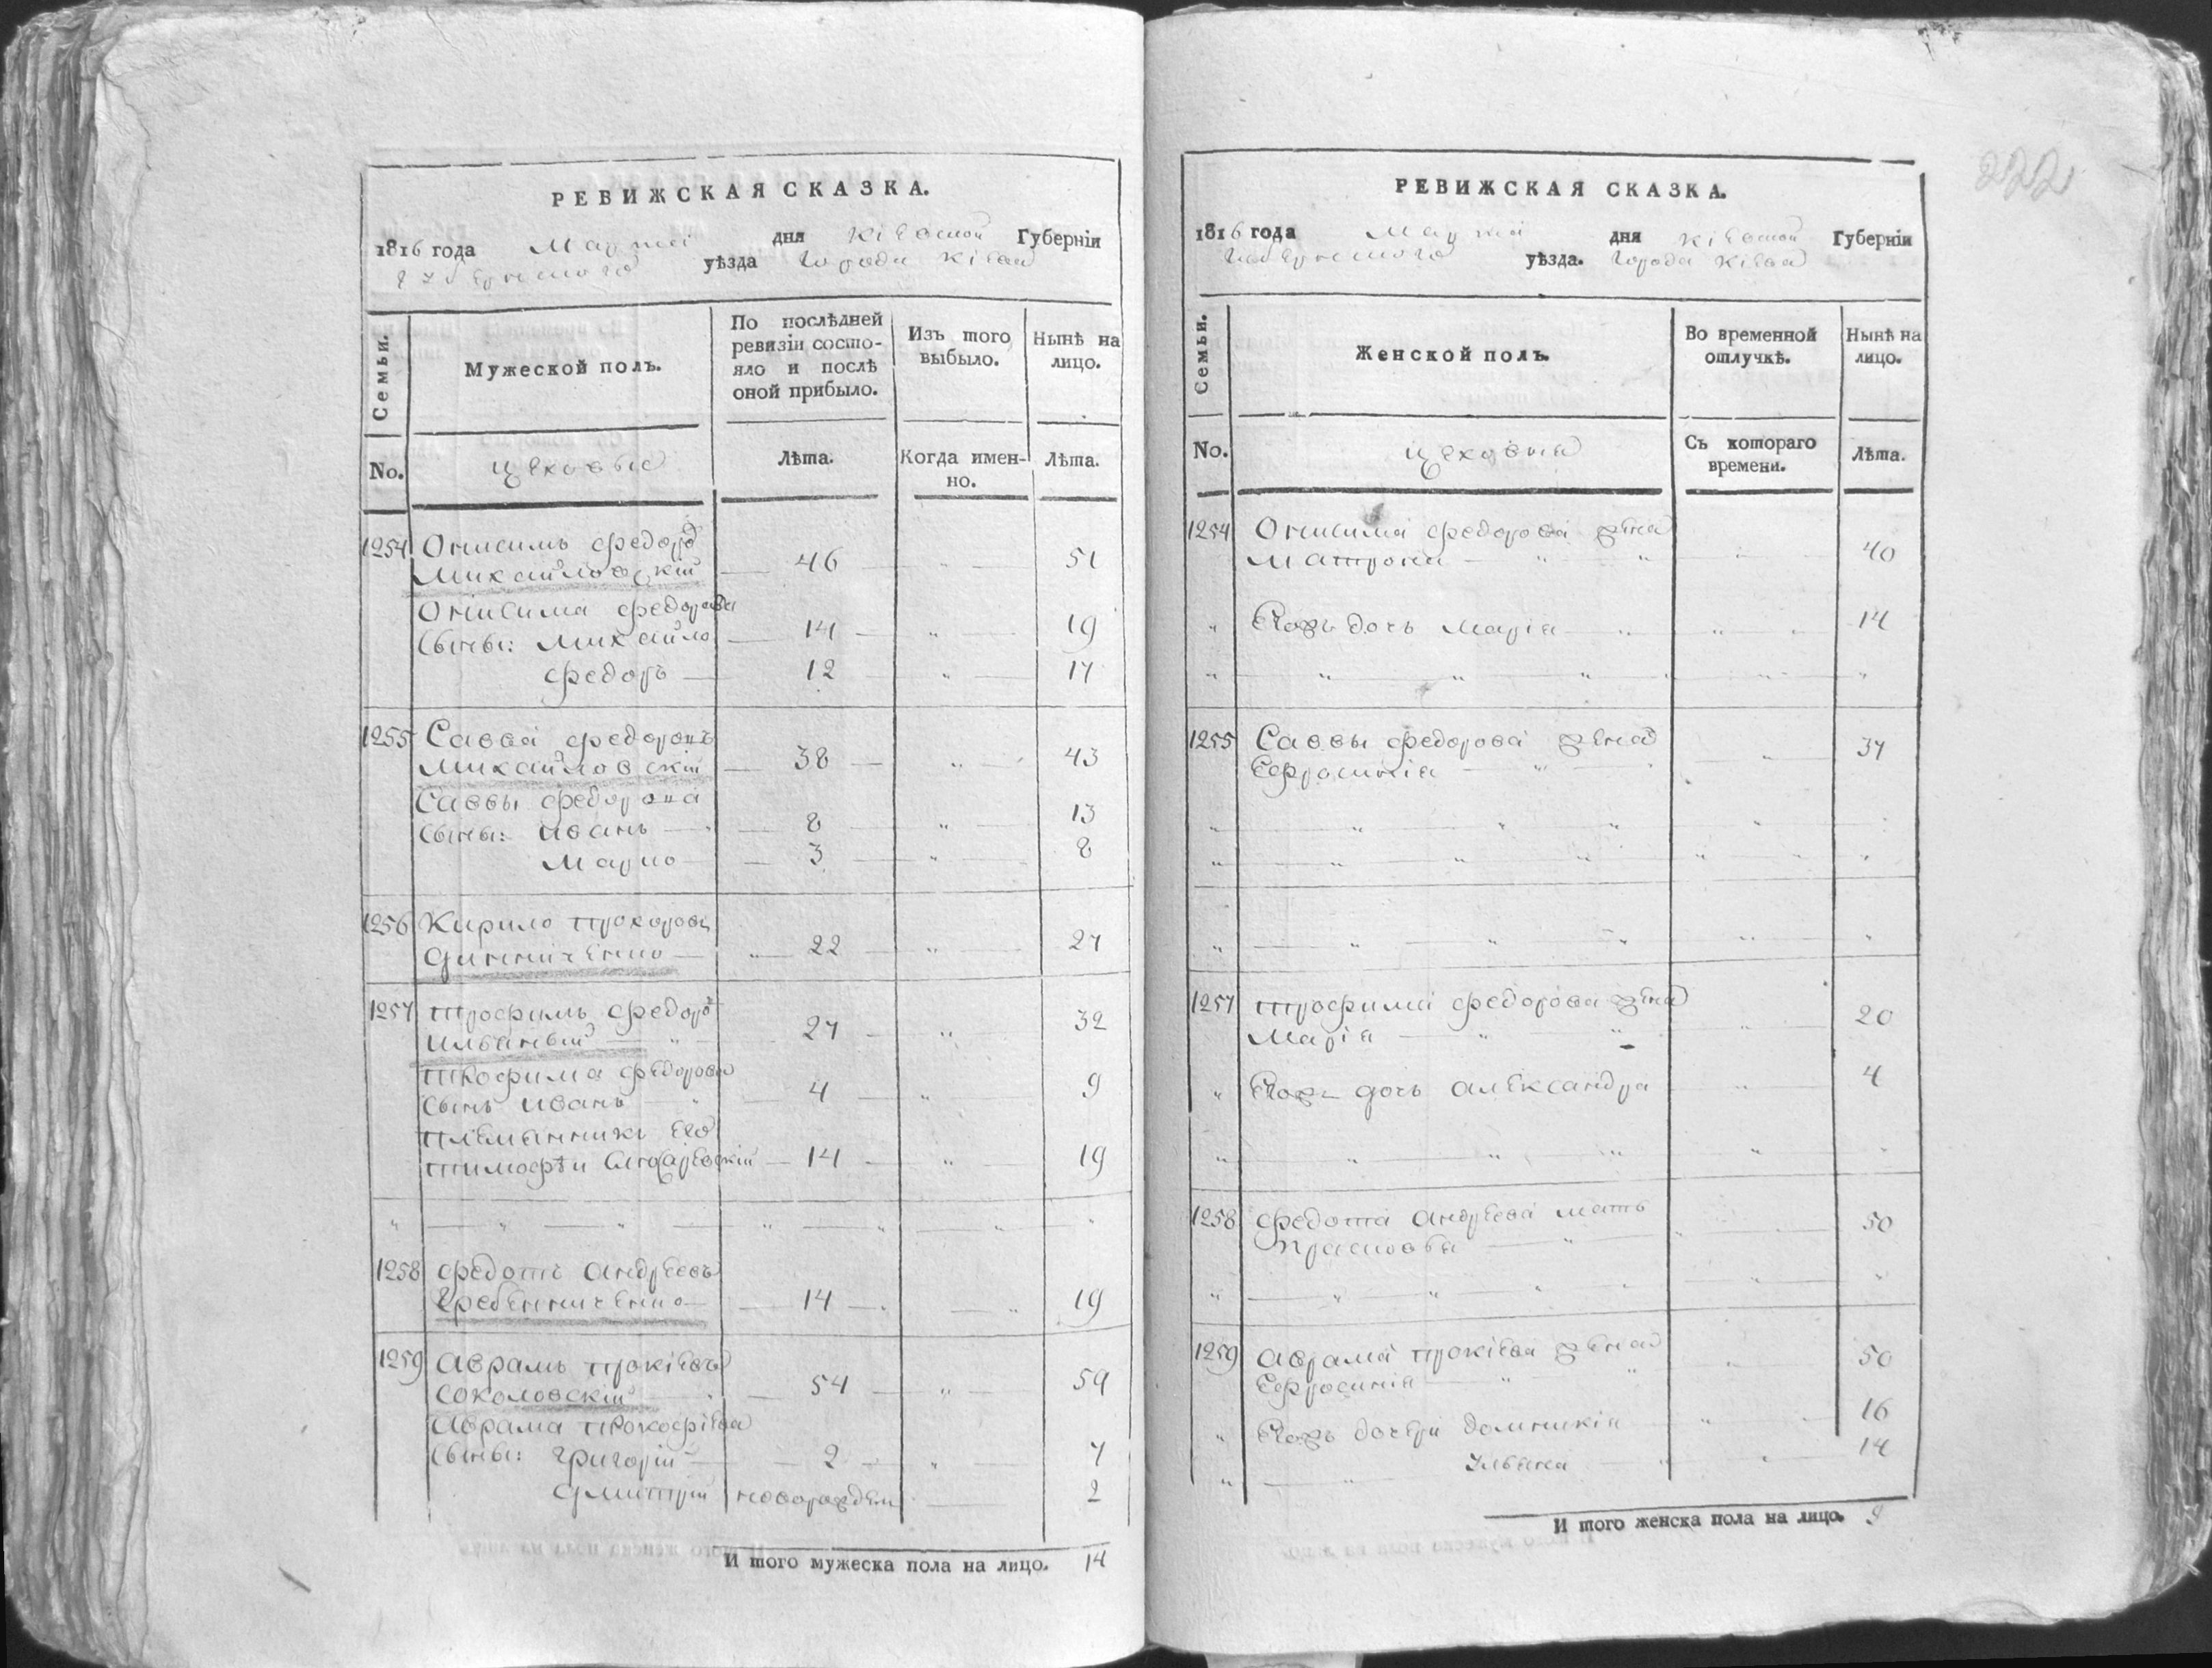 РЕВИЖСКАЯ СКАЗКА.
1816 года Марта дня Кіевской Губерніи
Губернского уѣзда Города Кіева
Семьи.
Мужеской полъ.
По послѣдней ревизіи состояло и послѣ оной прибыло.
Изъ того выбыло.
Нынѣ на лицо.
No.
цеховые
Лѣта.
Когда именно.
Лѣта.
1254 Онисимъ Федоровъ
Михайловскій 46 51
Онисима Федорова
сыны: Михайло 14 19
Федоръ 12 17
1255 Савва Федоровъ
Михайловскій 38 43
Саввы Федорова
сыны: Иванъ 8 13
Марко 3 8
1256 Кирило Прохоровъ
Динниченко 22 27
1257 Трофимъ Федоровъ
27 32
Трофима Федорова
сынъ Иванъ 4 9
племянникъ его
Тимофѣй 14 19
1258 Федотъ Андреевъ
Гребенниченко 14 19
1259 Аврамъ Прокіевъ
Соколовскій 54 59
Аврама Прокофіева
сыны: Григорій 2 7
Дмитрій новорожден 2
И того мужеска пола на лицо. 14
222
РЕВИЖСКАЯ СКАЗКА.
1816 года Марта дня Кіевской Губерніи
Губернского уѣзда. Города Кіева
Семьи.
Женской полъ.
Во временной отлучкѣ.
Нынѣ на лицо.
No.
цеховыя
Съ котораго времени.
Лѣта.
1254 Онисима Федорова жена
Матрона 40
Ихъ дочь Марія 14
1255 Саввы Федорова жена
Ефросинія 37
1257 Трофима Федорова жена
Марія 20
Ихъ дочь Александра 4
1258 Федота Андреева мать
Прасковья 50
1259 Аврама Прокіева жена
Ефросинія 50
Ихъ дочери Домникія 16
Ульяна 14
И того женска пола на лицо. 9